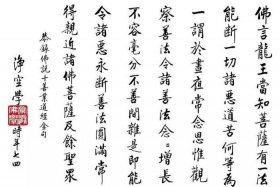 佛言龍王當知菩薩有一法
能斷一切諸惡道苦何等為
一謂於晝夜常念思惟觀
察善法令諸善法念々增長
不容毫分不善間雜是即能
令諸惡永斷善法圓滿常
得親近諸佛菩薩及餘聖眾
恭錄佛說十善業道經金句
淨空學 時年七四